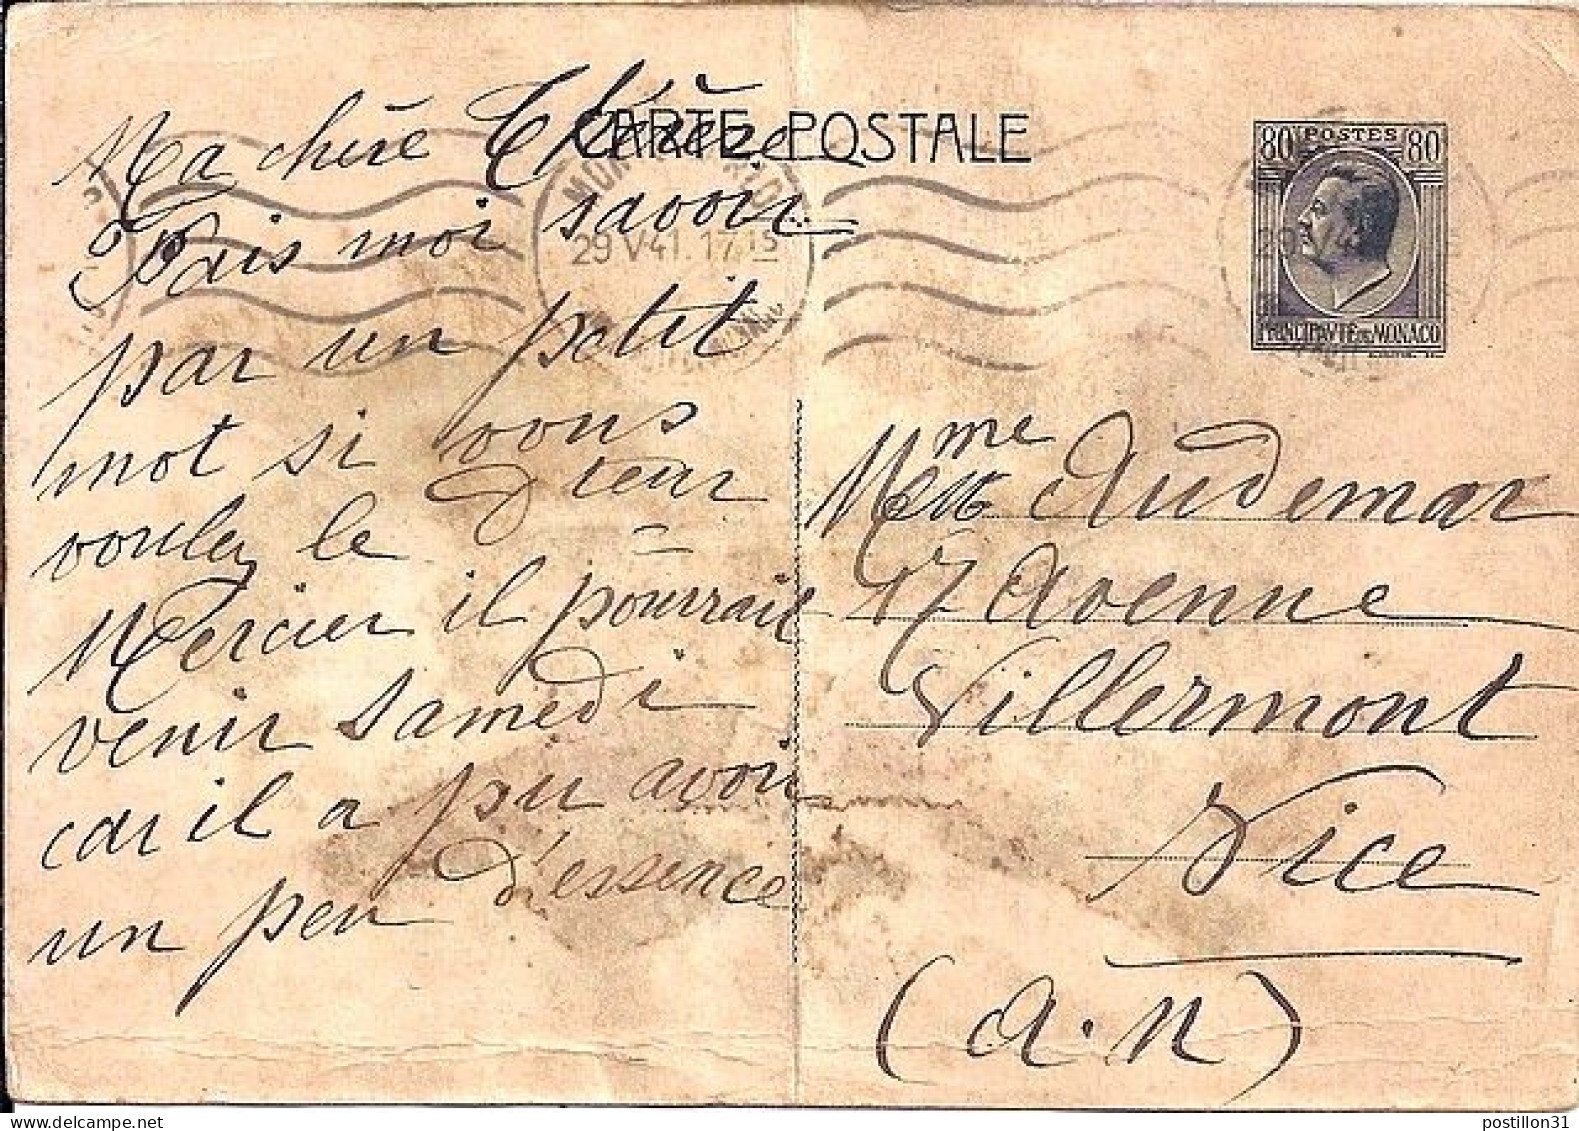 CARTE POSTALE
80 POSTES 80
PRINCIPAUTÉ DE MONACO
29 V 41. 17 15
Ma chère Thérèze
Fais moi savoir
par un petit
mot si vous
voulez le Dteur
Mercier il pourrait
venir samedi
car il a pu avoir
un peu d'essence
Mme Audemar
17 Avenue
Villermont
Nice
(A.M)
postillon31